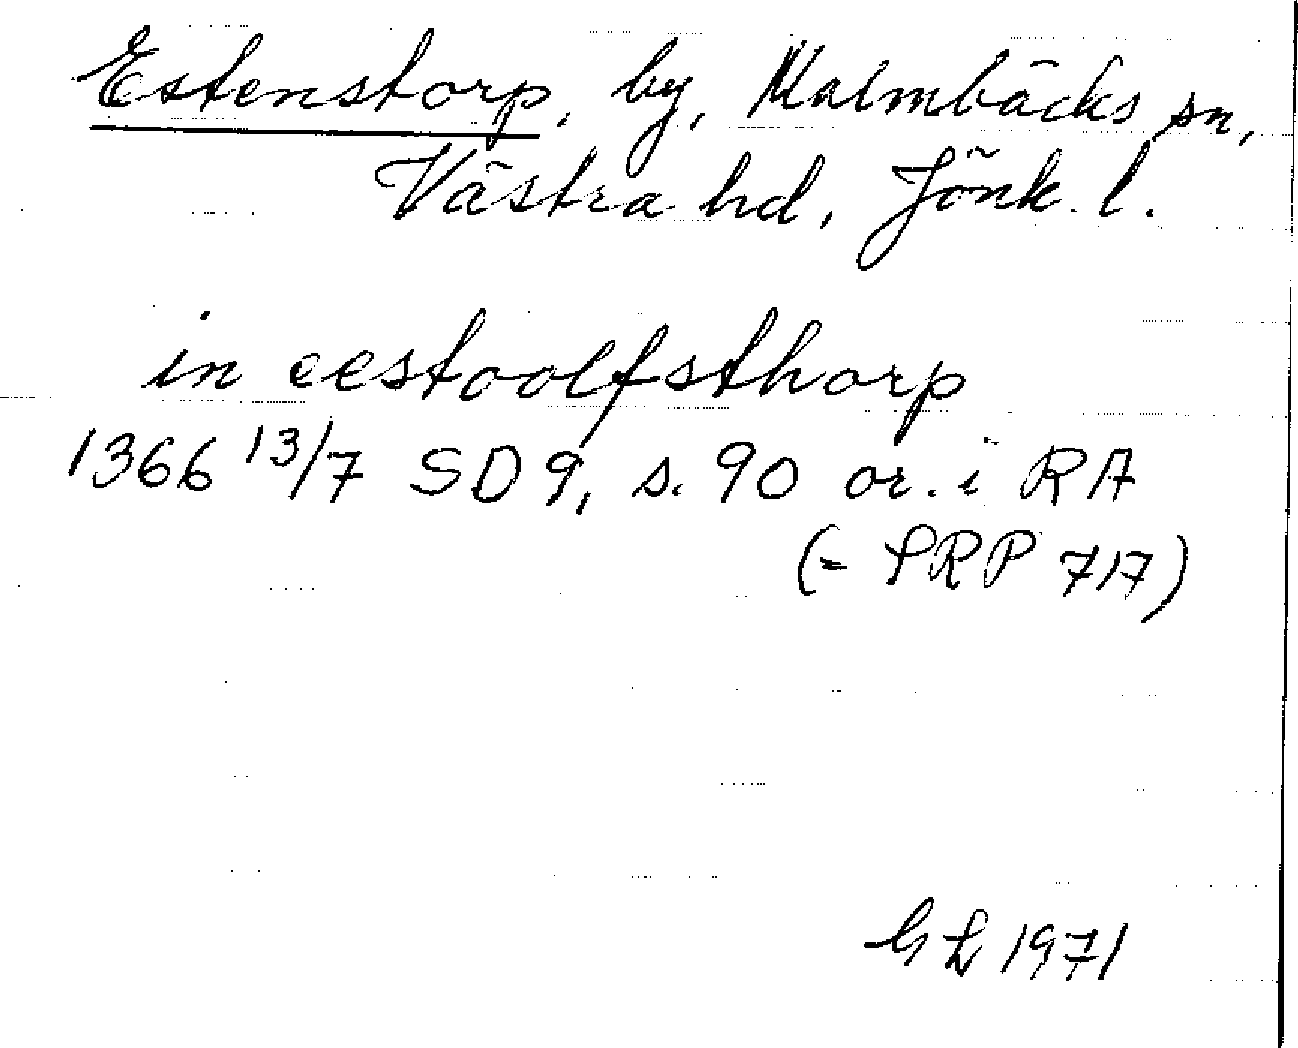 Estenstorp, by, Malmbäcks sn,
Västra hd, Jönk. l.
in eestoolfsthorp
1366 13/7 SD 9, s. 90 or. i RA
(= SRP 717)
GL 1971